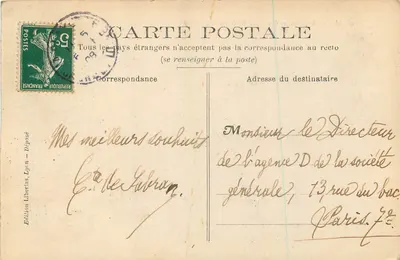 CARTE POSTALE
Tous les pays étrangers n'acceptent pas la correspondance au recto
(se renseigner à la poste)
Correspondance
Adresse du destinataire
POSTES
5c
REPUBLIQUE FRANÇAISE
Mes meilleurs souhaits
Cte de Sabran
Monsieur le Directeur
de l'agence D de la société
générale, 13 rue du bac
Paris. 7e.
Edition Lyon - Déposé